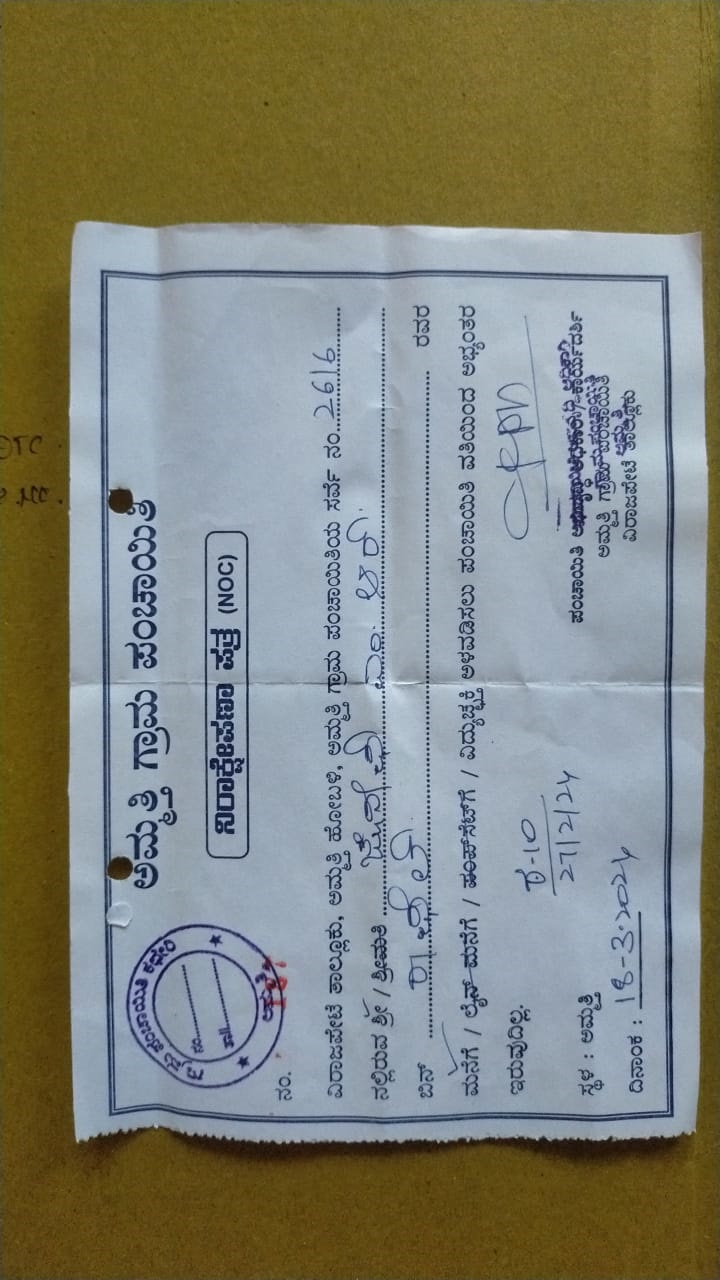 ಅಮ್ಮತ್ತಿ ಗ್ರಾಮ ಪಂಚಾಯಿತಿ
ನಿರಾಕ್ಷೇಪಣಾ ಪತ್ರ (NOC)
ಗ್ರಾಮ ಪಂಚಾಯಿತಿ ಕಛೇರಿ
ನಂ..........
ತಾ||..........
ಅಮ್ಮತ್ತಿ
ನಂ.
ವಿರಾಜಪೇಟೆ ತಾಲ್ಲೂಕು, ಅಮ್ಮತ್ತಿ ಹೋಬಳಿ, ಅಮ್ಮತ್ತಿ ಗ್ರಾಮ ಪಂಚಾಯಿತಿಯ ಸರ್ವೆ ನಂ. 26/6
ನಲ್ಲಿರುವ ಶ್ರೀ / ಶ್ರೀಮತಿ ಎಂ. ಆರ್.
ಬಿನ್ ರವರ
ಮನೆಗೆ / ಲೈನ್ ಮನೆಗೆ / ಪಂಪ್‌ಸೆಟ್‌ಗೆ / ವಿದ್ಯುಚ್ಛಕ್ತಿ ಅಳವಡಿಸಲು ಪಂಚಾಯಿತಿ ವತಿಯಿಂದ ಅಭ್ಯಂತರ
ಇರುವುದಿಲ್ಲ.
ಕ-10
27/2/24
ಸ್ಥಳ : ಅಮ್ಮತ್ತಿ
ದಿನಾಂಕ : 18-3-2024
ಪಂಚಾಯಿತಿ
ಅಮ್ಮತ್ತಿ ಗ್ರಾಮ ಪಂಚಾಯಿತಿ
ವಿರಾಜಪೇಟೆ ತಾಲ್ಲೂಕು